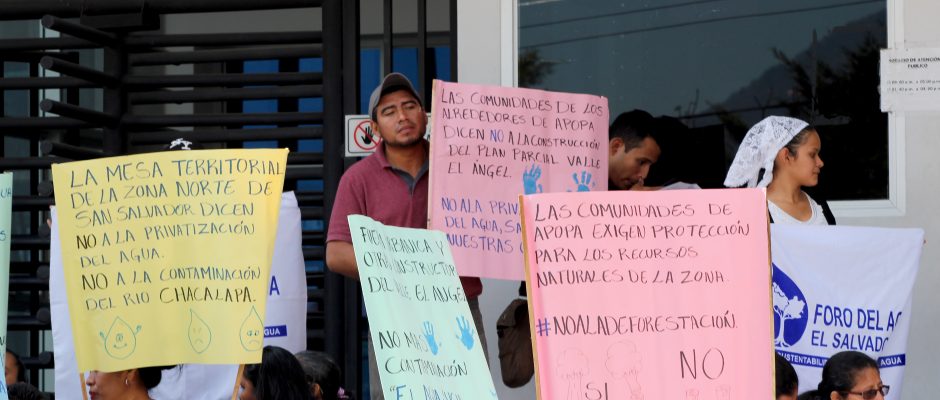 LA MESA TERRITORIAL
DE LA ZONA NORTE DE
SAN SALVADOR DICEN
NO A LA PRIVATIZACIÓN
DEL AGUA.
NO A LA CONTAMINACIÓN
DEL RIO CHACALAPA.
LAS COMUNIDADES DE LOS
ALREDEDORES DE APOPA
DICEN NO A LA CONSTRUCCIÓN
DEL PLAN PARCIAL VALLE
EL ÁNGEL.
NO A LA
DEL AGUA, SA
NUESTRAS
Y
CONSTRUCTOR
EL ANGEL.
NO MAS
CONTAMINACIÓN
LAS COMUNIDADES DE
APOPA EXIGEN PROTECCIÓN
PARA LOS RECURSOS
NATURALES DE LA ZONA.
#NOALADEFORESTACIÓN.
SI NO
FORO DEL AG
EL SALVADOR
SUSTENTABILI
AGUA
PUBLICO